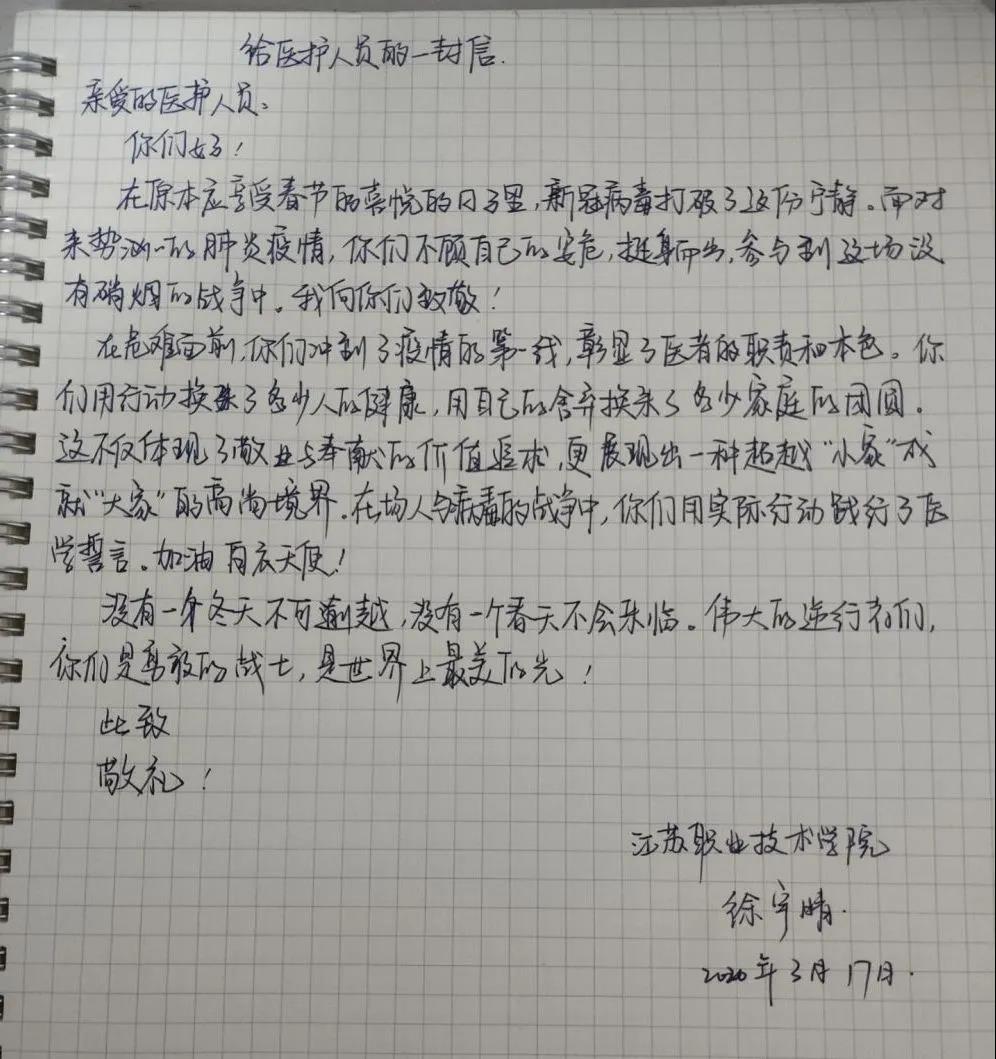 给医护人员的一封信.
亲爱的医护人员:
你们好!
在原本应享受春节的喜悦的日子里,新冠病毒打破了这份宁静。面对
来势汹汹的肺炎疫情,你们不顾自己的安危,挺身而出,参与到这场没
有硝烟的战争中。我向你们致敬!
在危难面前,你们冲到了疫情的第一线,彰显了医者的职责和本色。你
们用行动换来了多少人的健康,用自己的舍弃换来了多少家庭的团圆。
这不仅体现了敬业与奉献的价值追求,更展现出一种超越“小家”成
就“大家”的高尚境界。在场人与病毒的战争中,你们用实际行动践行了医
学誓言。加油白衣天使!
没有一个冬天不可逾越,没有一个春天不会来临。伟大的逆行者们,
你们是勇敢的战士,是世界上最美的光!
此致
敬礼!
江苏职业技术学院
徐宇晴.
2020年3月17日.